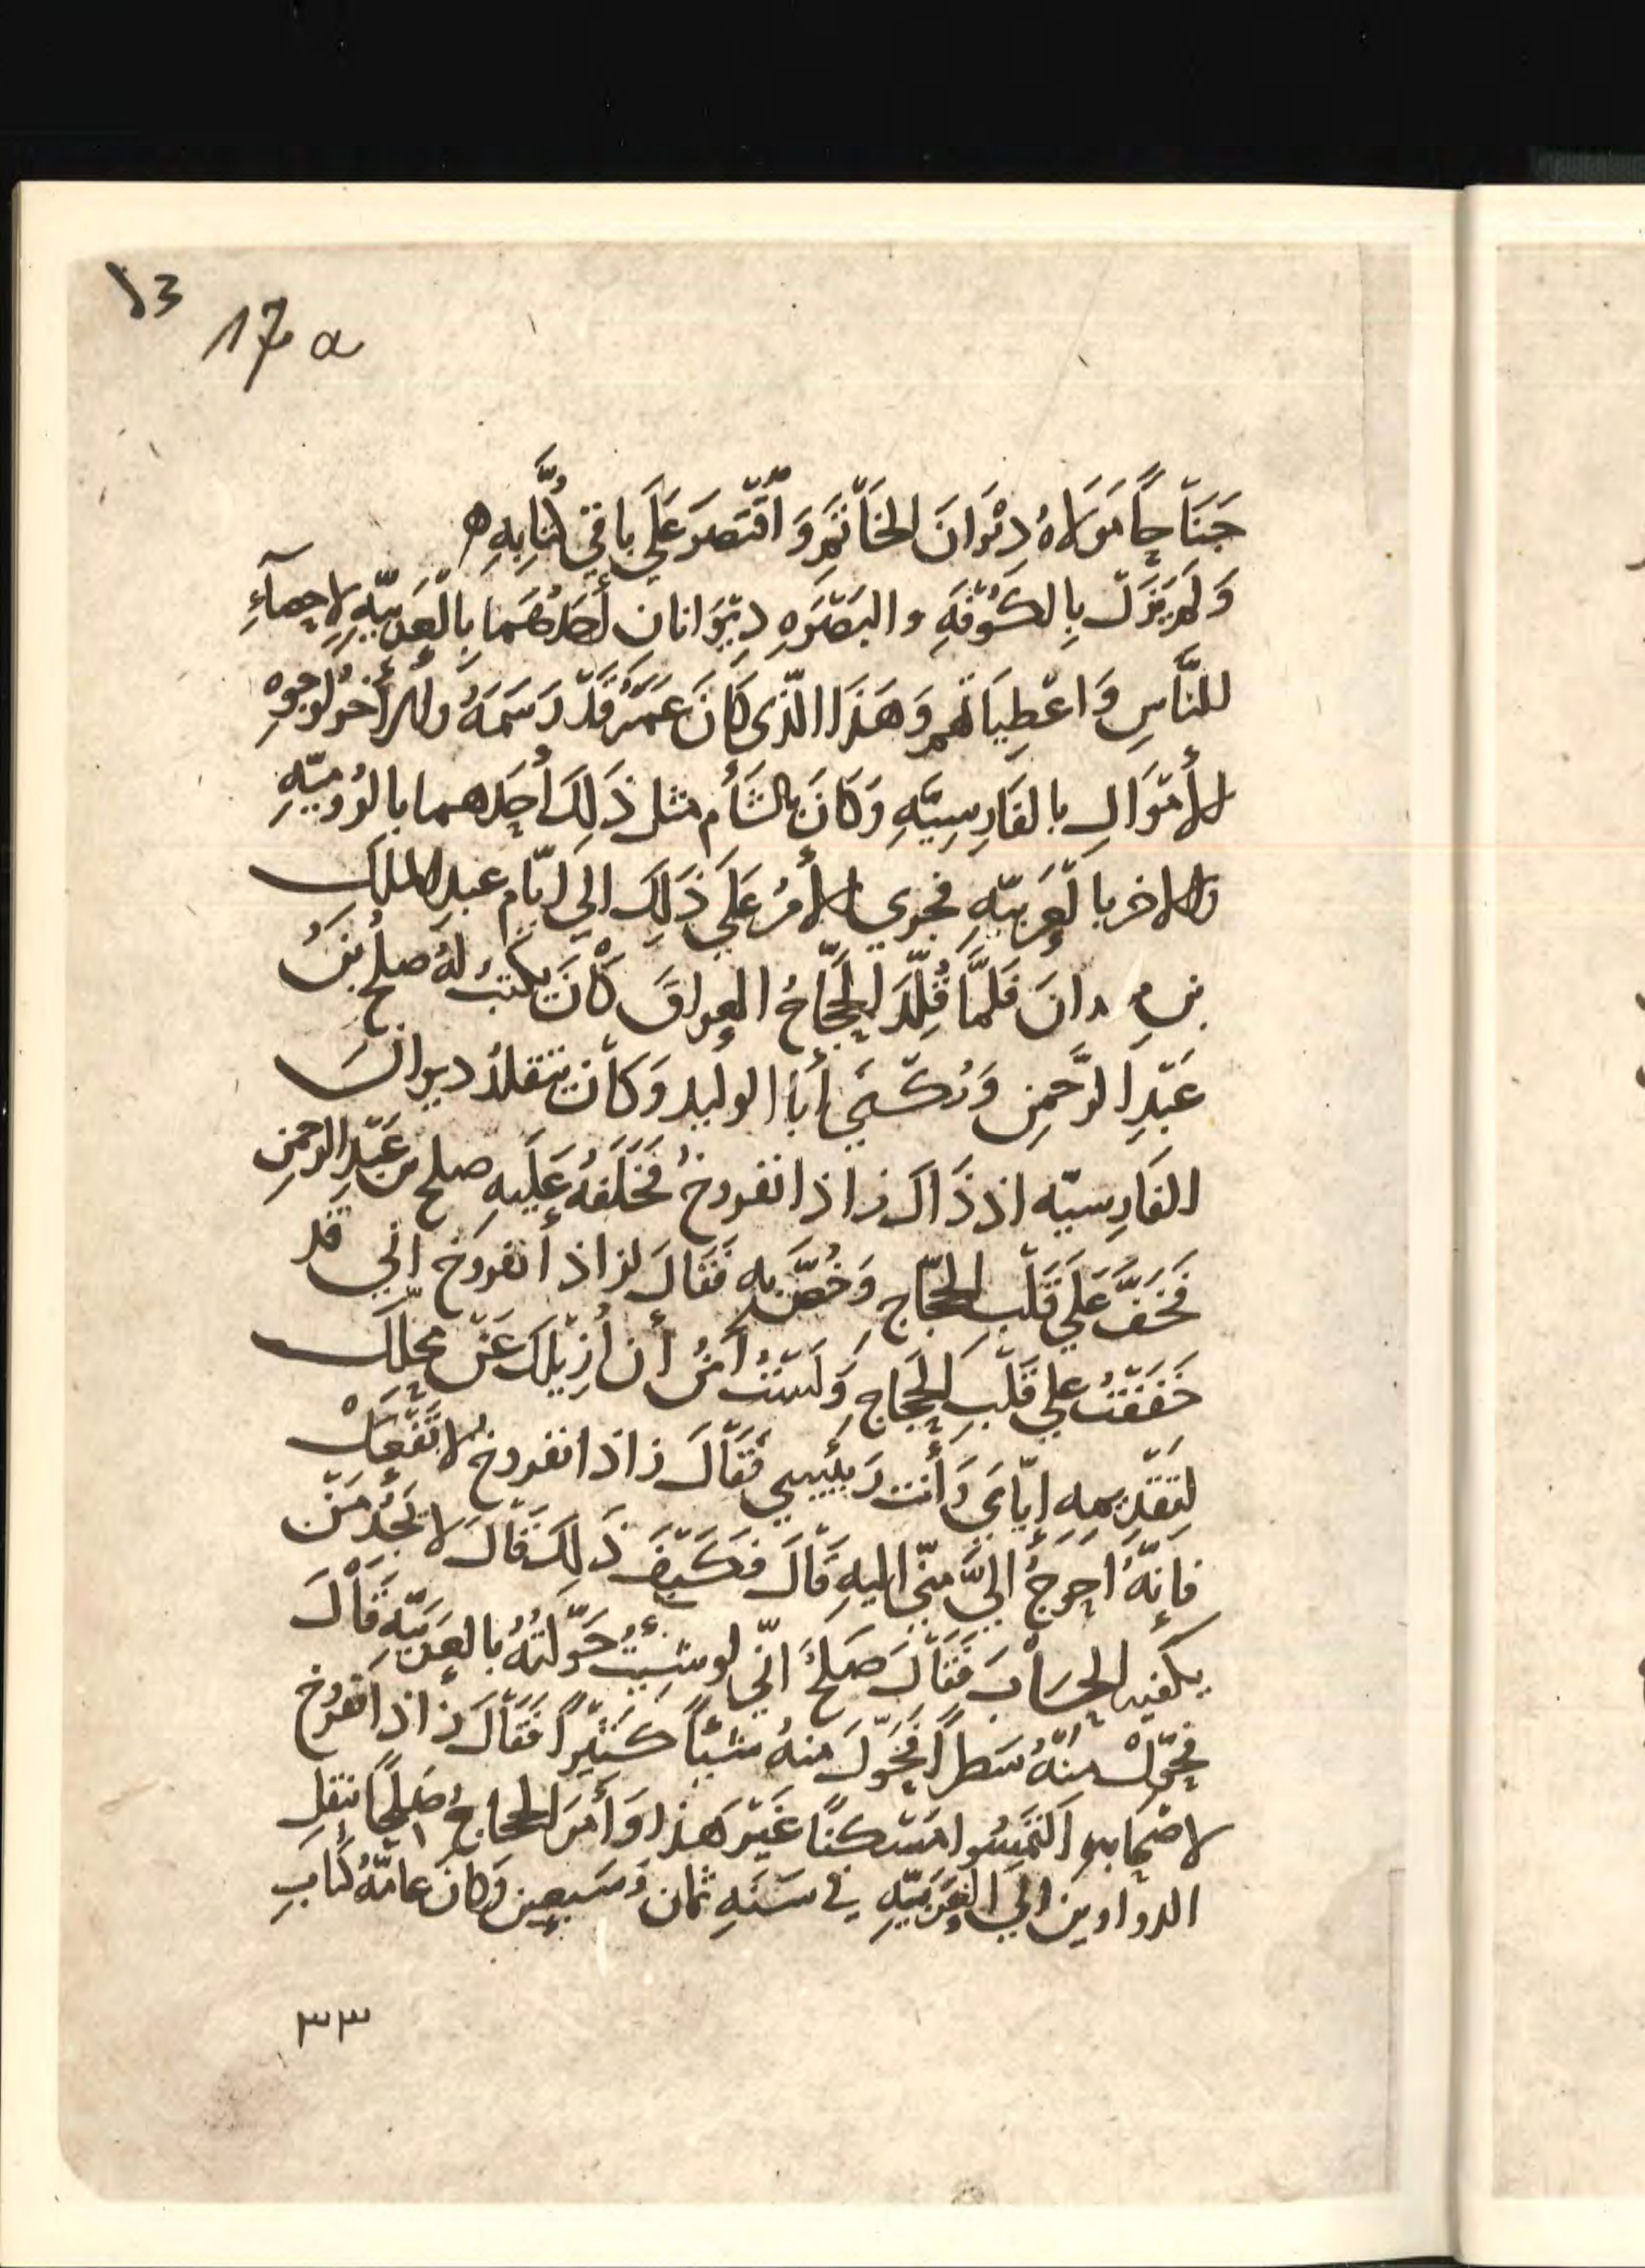 ١٣
17 a
جَنَاحًا مَوَلاهُ دِيْوَانَ الخَاتَمِ وَاقْتَصَرَ عَلَي باقي كُتَّابِهِ ه
وَلَمْ يَزَلْ بِالكُوْفَةِ والبَصْرَهِ دِيْوَانانِ أَحَدُهُمَا بِالْعَرَبيّهِ لإحصآءِ
للنَّاسِ وَاعْطِيَاتهم وَهَذَا الَّذِي كَانَ عُمَرُ قَدْ رَسَمَهُ والأَخرُ لوجوهِ
الأَمْوَالِ بالفَارِسِيَّهِ وَكَانَ بالشَأم مثل ذَلِكَ أَحَدهما بالرُوميّهِ
والاخر بالْعَرَبيّهِ فجري الأَمرُ عَلَي ذَلِكَ الي ايّام عبدِ الملكِ
بنِ مروانَ فَلمَّا قُلِّدَ الحَجَّاجُ العراقَ كَانَ يكتبُ لَهُ صلح بنُ
عَبْدِ الرَّحمنِ وَيُكْنَي أَبَا الوليد وَكانَ يتقلدُ ديوانَ
الفَارِسيّه اذ ذَاكَ زاذانفروخُ فَخَلَفَهُ عَلَيهِ صلح بن عَبْدِ الرحمنِ
فَخَفَّ عَلَي قَلْبِ الحجّاج وَخُصَّ بهِ فَقَالَ لزاذانفروخَ اني قد
خَفَفْتُ علي قَلْبِ الحَجّاج وَلَسْتُ آمَنُ أن أُزِيْلكَ عَنْ محلّكَ
لِتَقْدِيمِهِ ايّايَ وَأَنتَ رَئيسي فَقَالَ زاذانفروخُ لا تَفْعَلْ
فَإِنَّهُ أحوجُ إليَّ مِنّي إليهِ قَالَ فكَيْفَ ذَلِكَ قَالَ لا يَجدُ مَنْ
يكفيه الحِسَابَ فَقَالَ صلح انّي لو شئتُ حَوَّلتُهُ بالعربيّةِ قَالَ
فحَوّلْ مِنْهُ سَطراً فَحَوَّلَ منهُ شيئاً كَثِيْراً فَقَالَ زاذانفروخ
لاصْحَابهِ الْتَمِسُوا مَسْكنًا غَيْر هَذا وَأَمَرَ الحجاجُ صلحًا بنقلِ
الدواوين الي العَرَبيّهِ في سَنَهِ ثمان وَسَبعين وَكانَ عامّهُ كُتّابِ
٣٣